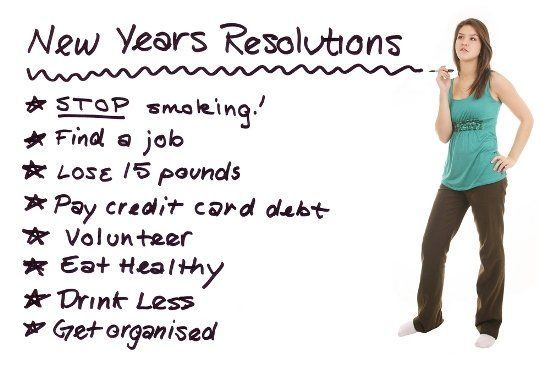 New Years Resolutions
STOP smoking!
Find a job
Lose 15 pounds
Pay credit card debt
Volunteer
Eat Healthy
Drink Less
Get organised